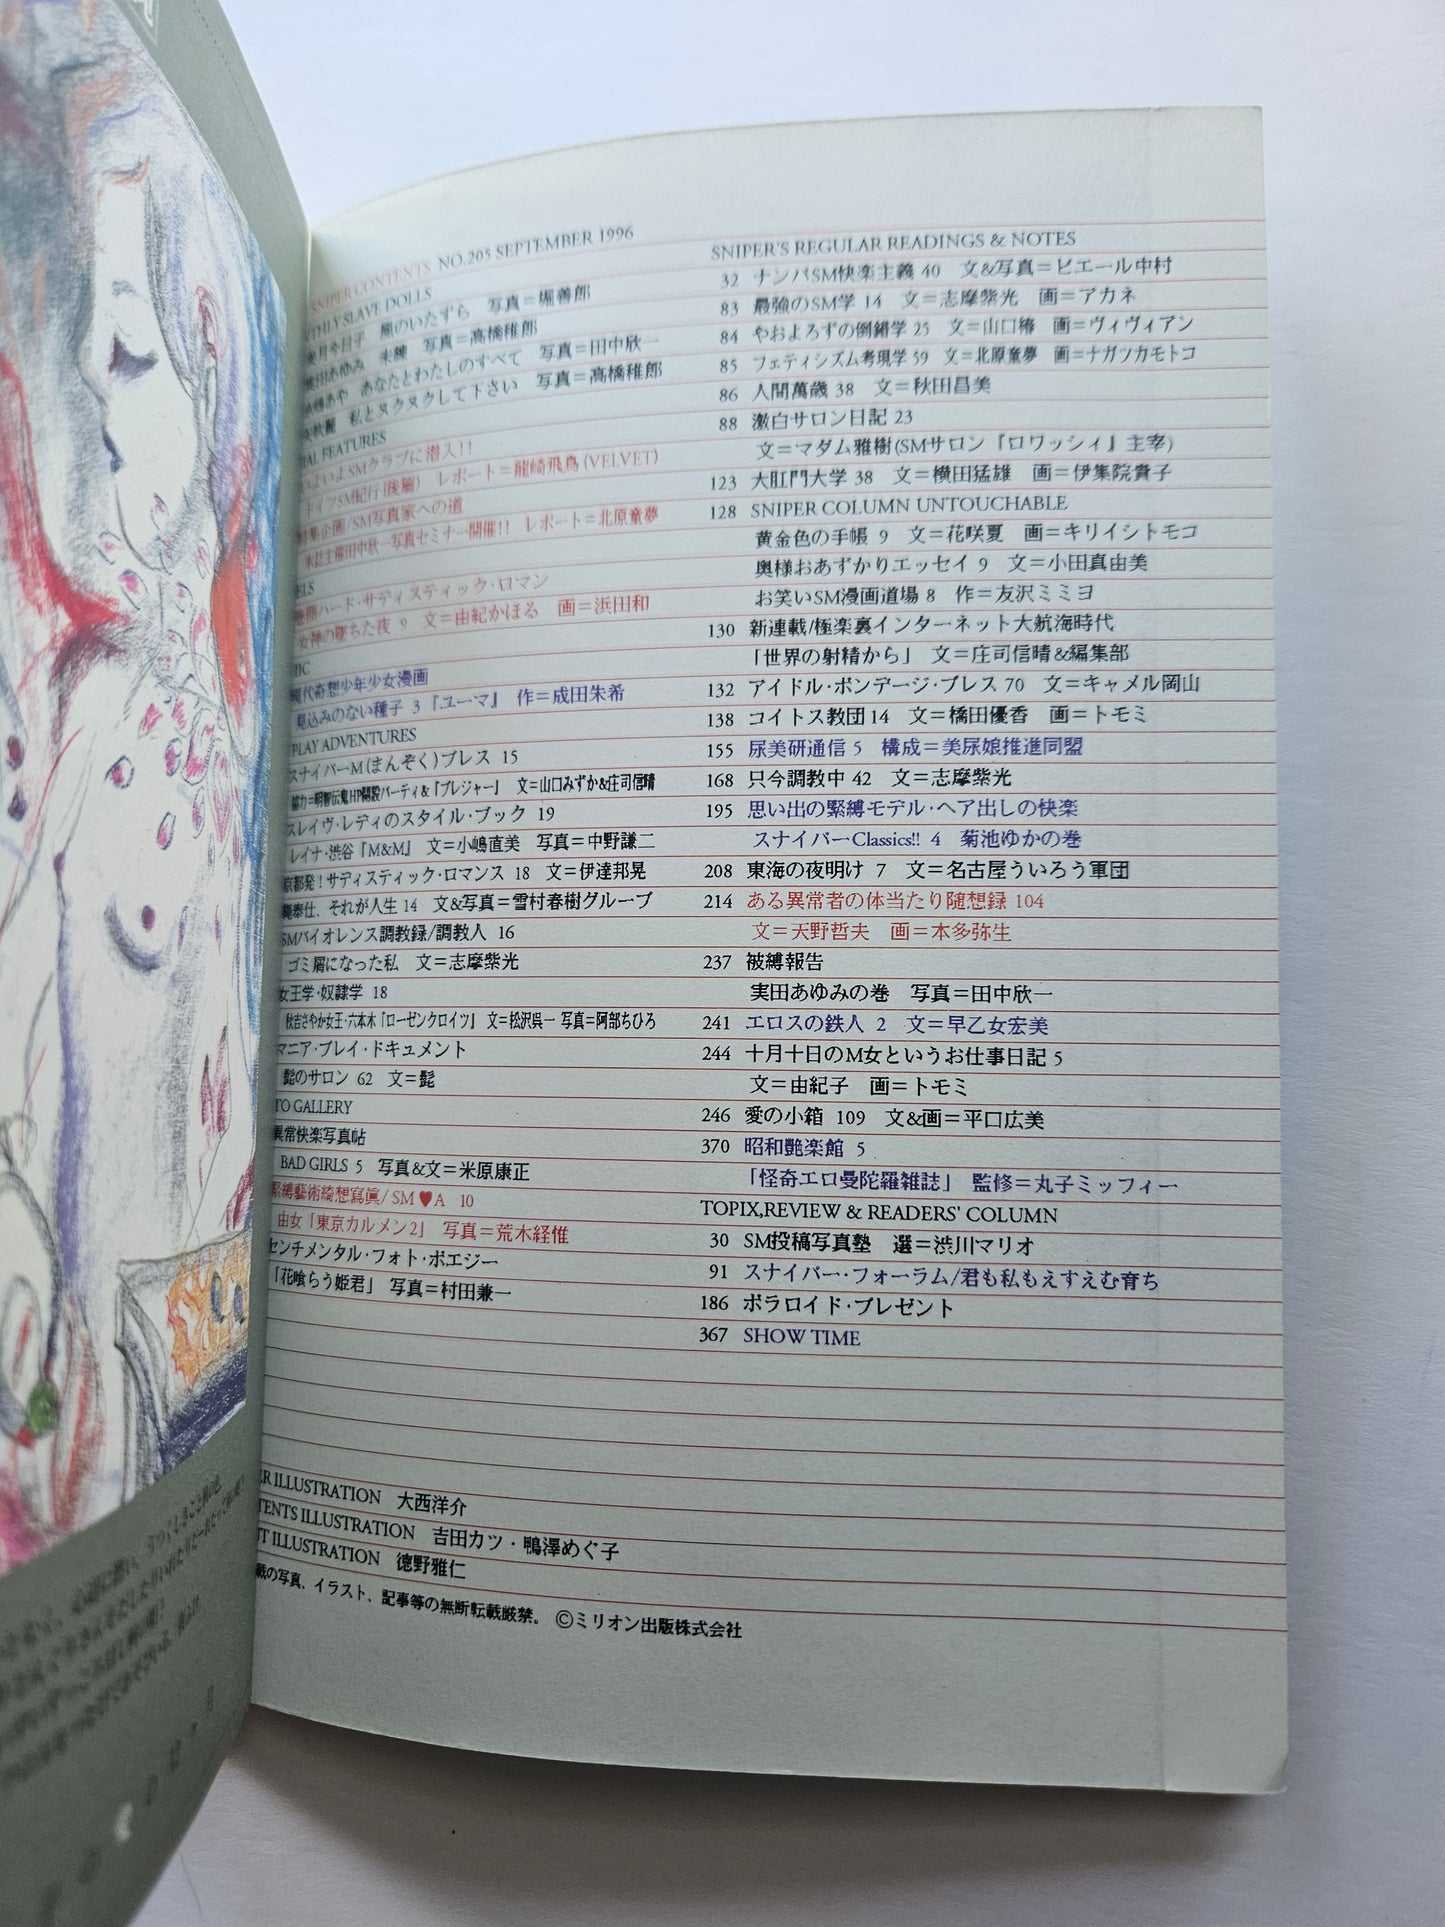 SNIPER CONTENTS NO.205 SEPTEMBER 1996
THLY SLAVE DOLLS
月今日子 風のいたずら 写真=堀善郎
田あゆみ 未練 写真=高橋稚郎
あや あなたとわたしのすべて 写真=田中欣一
私とヌクヌクして下さい 写真=高橋稚郎
IAL FEATURES
いよいよSMクラブに潜入!!
ドイツSM紀行(後篇) レポート=龍崎飛鳥(VELVET)
集企画/SM写真家への道
本誌主催田中欣一写真セミナー開催!! レポート=北原童夢
ELS
巻頭ハード・サディスティック・ロマン
女神の墜ちた夜 9 文=由紀かほる 画=浜田和
IIC
現代奇想少年少女漫画
見込みのない種子 3『ユーマ』 作=成田朱希
PLAY ADVENTURES
スナイパーM(まんぞく)プレス 15
協力=明智伝鬼HP開設パーティ&『プレジャー』 文=山口みずか&庄司信晴
スレイヴ・レディのスタイル・ブック 19
レイナ・渋谷『M&M』 文=小嶋直美 写真=中野謙二
京都発!サディスティック・ロマンス 18 文=伊達邦晃
縄奉仕、それが人生 14 文&写真=雪村春樹グループ
SMバイオレンス調教録/調教人 16
ゴミ屑になった私 文=志摩紫光
女王学・奴隷学 18
秋吉さやか女王・六本木『ローゼンクロイツ』 文=松沢呉一 写真=阿部ちひろ
マニア・プレイ・ドキュメント
髭のサロン 62 文=髭
TO GALLERY
異常快楽写真帖
BAD GIRLS 5 写真&文=米原康正
緊縛藝術綺想寫眞/SM♥A 10
由女「東京カルメン2」 写真=荒木経惟
センチメンタル・フォト・ポエジー
「花喰らう姫君」 写真=村田兼一
ER ILLUSTRATION 大西洋介
TENTS ILLUSTRATION 吉田カツ・鴨澤めぐ子
T ILLUSTRATION 徳野雅仁
載の写真、イラスト、記事等の無断転載厳禁。 ©ミリオン出版株式会社
SNIPER'S REGULAR READINGS & NOTES
32 ナンパSM快楽主義 40 文&写真=ピエール中村
83 最強のSM学 14 文=志摩紫光 画=アカネ
84 やおよろずの倒錯学 25 文=山口椿 画=ヴィヴィアン
85 フェティシズム考現学 59 文=北原童夢 画=ナガツカモトコ
86 人間萬歳 38 文=秋田昌美
88 激白サロン日記 23
文=マダム雅樹(SMサロン『ロワッシィ』主宰)
123 大肛門大学 38 文=横田猛雄 画=伊集院貴子
128 SNIPER COLUMN UNTOUCHABLE
黄金色の手帳 9 文=花咲夏 画=キリイシトモコ
奥様おあずかりエッセイ 9 文=小田真由美
お笑いSM漫画道場 8 作=友沢ミミヨ
130 新連載/極楽裏インターネット大航海時代
「世界の射精から」 文=庄司信晴&編集部
132 アイドル・ボンデージ・プレス 70 文=キャメル岡山
138 コイトス教団 14 文=橋田優香 画=トモミ
155 尿美研通信 5 構成=美尿娘推進同盟
168 只今調教中 42 文=志摩紫光
195 思い出の緊縛モデル・ヘア出しの快楽
スナイパーClassics!! 4 菊池ゆかの巻
208 東海の夜明け 7 文=名古屋ういろう軍団
214 ある異常者の体当たり随想録 104
文=天野哲夫 画=本多弥生
237 被縛報告
実田あゆみの巻 写真=田中欣一
241 エロスの鉄人 2 文=早乙女宏美
244 十月十日のM女というお仕事日記 5
文=由紀子 画=トモミ
246 愛の小箱 109 文&画=平口広美
370 昭和艶楽館 5
「怪奇エロ曼陀羅雑誌」 監修=丸子ミッフィー
TOPIX,REVIEW & READERS' COLUMN
30 SM投稿写真塾 選=渋川マリオ
91 スナイパー・フォーラム/君も私もえすえむ育ち
186 ポラロイド・プレゼント
367 SHOW TIME